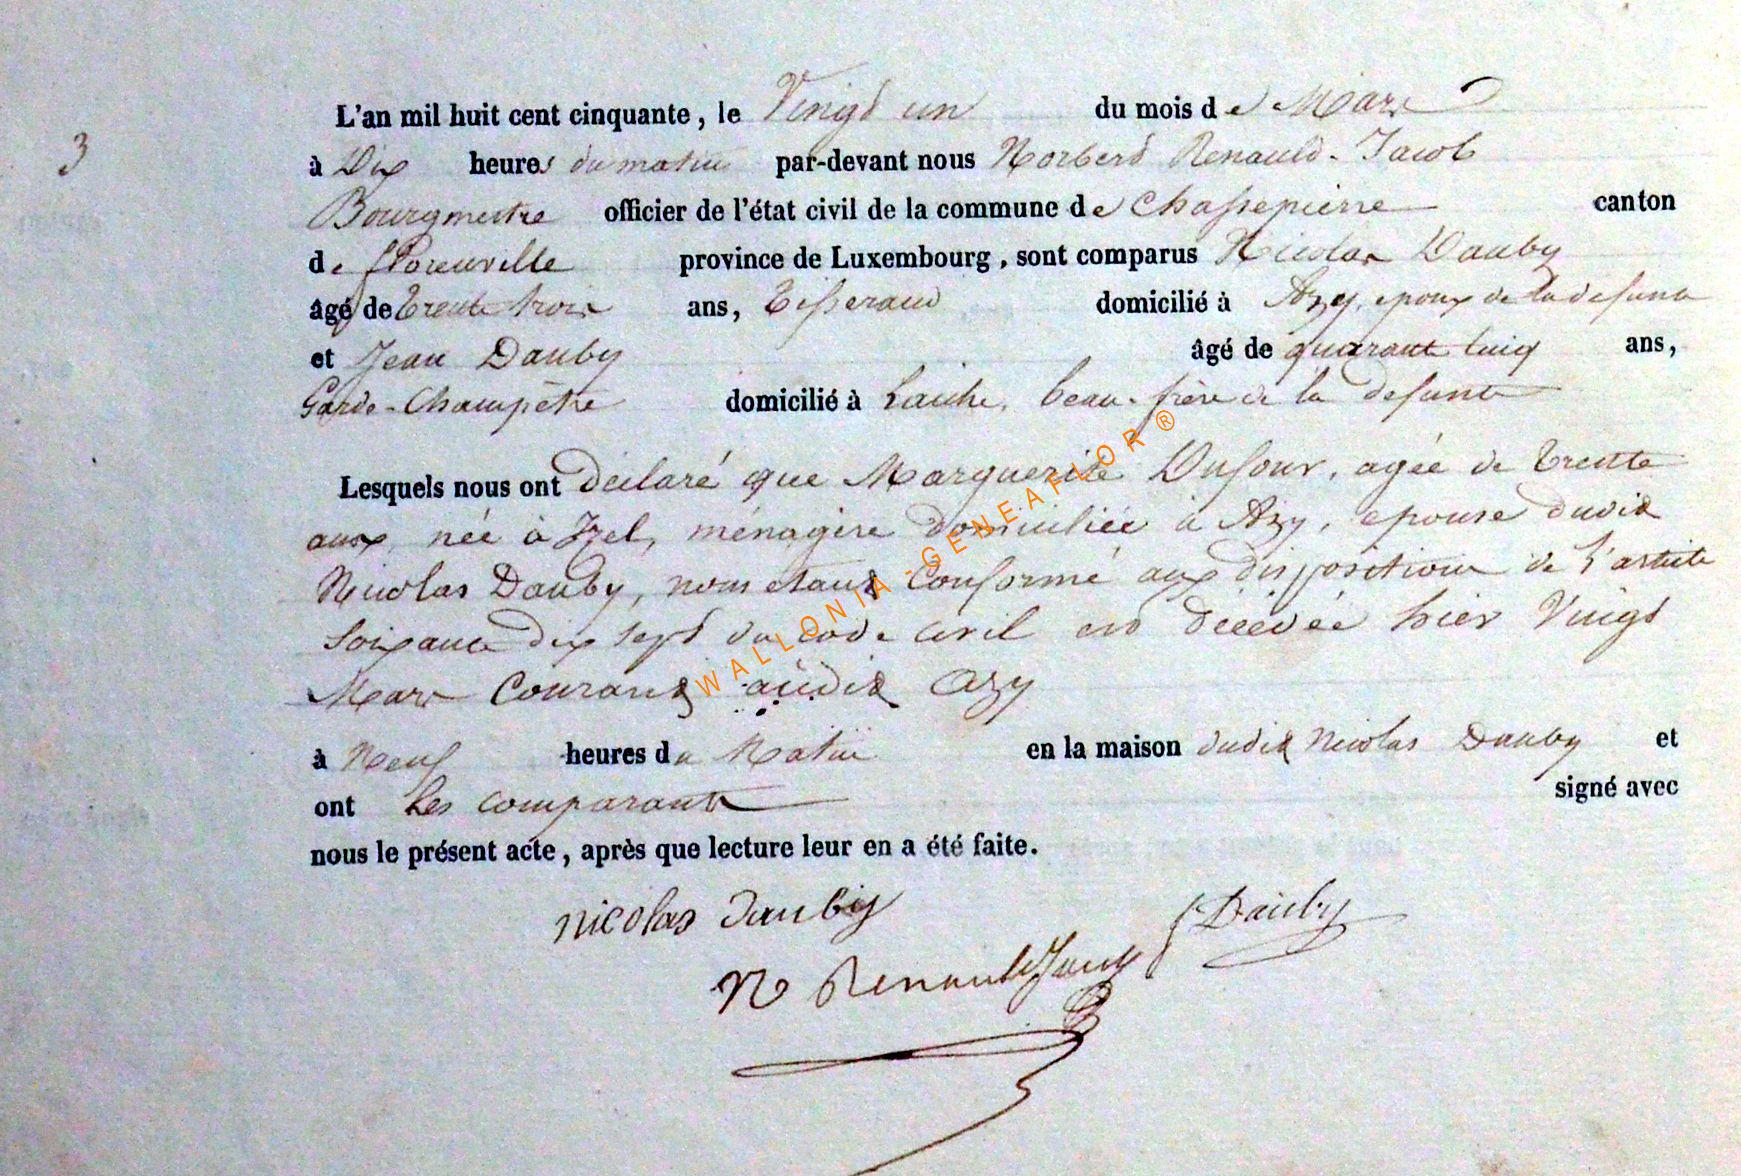 3
L'an mil huit cent cinquante, le Vingt un du mois de Mars
à Dix heures du matin par-devant nous Norbert Renauld-Jacob
Bourgmestre officier de l'état civil de la commune de Chassepierre canton
de florenville province de Luxembourg, sont comparus Nicolas Dauby
âgé de trente trois ans, tisserand domicilié à Azy, epoux de la defunte
et Jean Dauby âgé de quarante cinq ans,
Garde-Champêtre domicilié à Laiche, beau-frère de la defunte
Lesquels nous ont déclaré que Marguerite Dufour, agée de trente
ans, née à Izel, ménagère domiciliée à Azy, epouse dudit
Nicolas Dauby, nous étant conformé aux dispositions de l'article
soixante dix sept du code civil est décédée hier Vingt
Mars Courant audit Azy
à Neuf heures du Matin en la maison dudit Nicolas Dauby et
ont les comparants signé avec
nous le présent acte, après que lecture leur en a été faite.
nicolas Dauby
J Dauby
N Renauld Jacob
WALLONIA-GENEAFLOR®